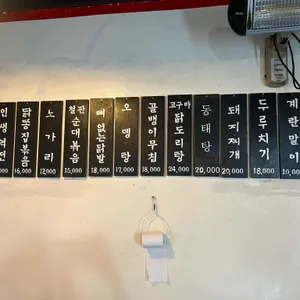 인생역전
000
닭똥집볶음
16,000
노가리
12,000
철판순대볶음
15,000
뼈없는닭발
18,000
오뎅탕
17,000
골뱅이무침
18,000
고구마닭도리탕
24,000
동태탕
20,000
돼지찌개
20,000
두루치기
18,000
계란말이
10,000